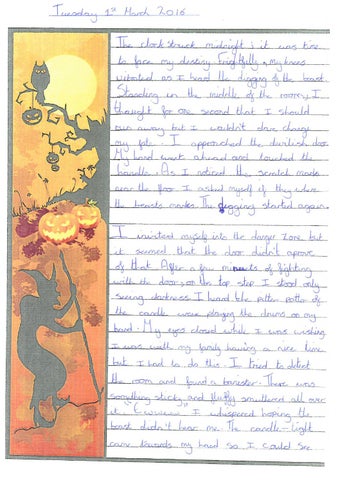 Tuesday 1st March 2016
The clock struck midnight; it was time
to face my destiny. Frightfully, my knees
vibrated as I heard the digging of the beast.
Standing in the middle of the room, I
thought for one second that I should
run away but I wouldn't dare change
my fate. I approached the devilish door.
My hand went ahead and touched the
handle. As I noticed the scratch marks
near the floor I asked myself if they where
the beasts makes. The digging started again.
I insisted myself into the danger zone but
it seemed that the door didn't aprove
of that. After a few minuets of fighting
with the door, on the top step I stood only
seeing darkness. I heard the pitter patter of
the candle wax playing the drums on my
hand. My eyes closed while I was wishing
I was with my family having a nice time
but I had to do this. I tried to detect
the room and found a banister. There was
something sticky and fluffy smothered all over
it. "Ewwww" I whispered hoping the
beast didn't hear me. The candle-light
came towards my hand so I could see